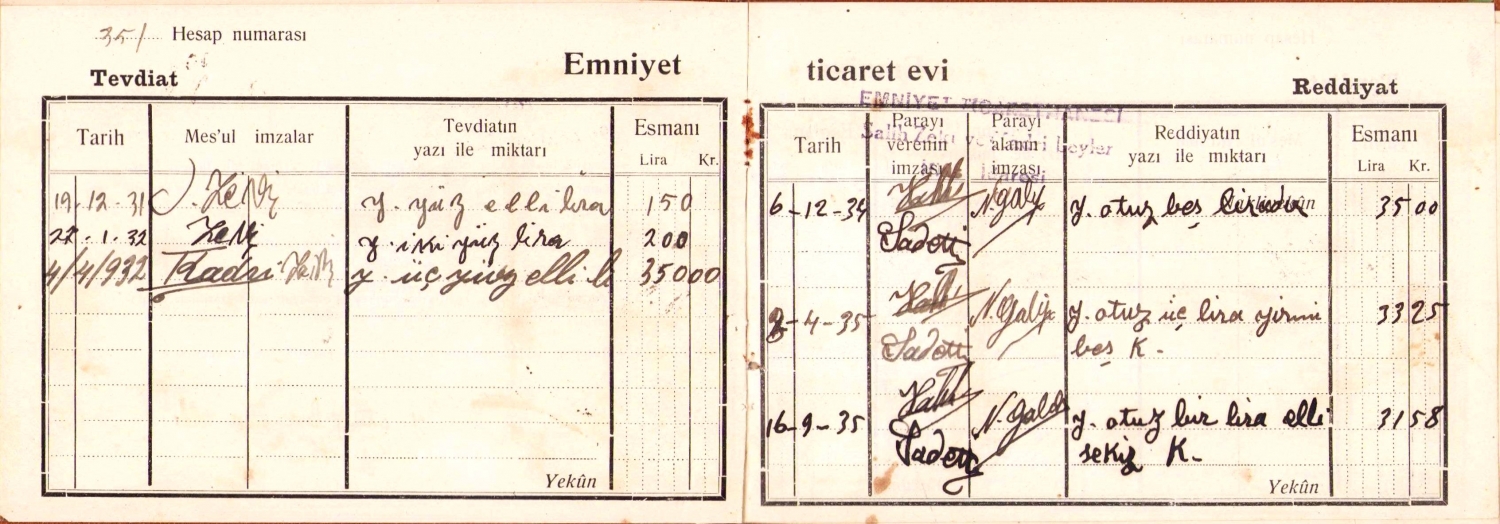 351 Hesap numarası
Tevdiat
Emniyet
Tarih Mes'ul imzalar Tevdiatın yazı ile miktarı Esmanı Lira Kr.
19-12-31 Zeki y. yüz elli lira 150
22-1-32 Zeki y. iki yüz lira 200
4/4/932 Kadri Zeki y. üç yüz elli li 350 00
Yekûn
ticaret evi
Reddiyat
EMNİYET TİCARETHANESİ
Salih Zeki ve Kadri beyler
İdaresi
Tarih Parayı verenin imzası Parayı alanın imzası Reddiyatın yazı ile miktarı Esmanı Lira Kr.
6-12-34 Hakkı N. Galip y. otuz beş liradır 35 00
Sadettin
2-4-35 Hakkı N. Galip y. otuz üç lira yirmi 33 25
Sadettin beş K.
16-9-35 Hakkı N. Galip y. otuz bir lira elli 31 58
Sadettin sekiz K.
Yekûn